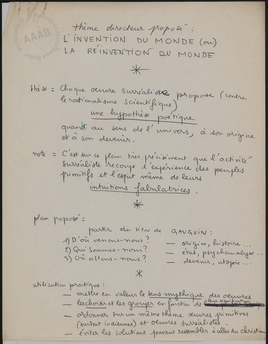 AAAB
thème directeur proposé :
L'INVENTION DU MONDE (ou)
LA RÉINVENTION DU MONDE
thèse = Chaque oeuvre surréaliste propose (contre
le rationalisme scientifique)
une hypothèse poétique
quant au sens de l'univers, à son origine
et à son devenir.
note = C'est sur ce plan très précisément que l'activité
surréaliste recoupe l'expérience des peuples
primitifs et l'esprit même de leurs
intuitions fabulatrices.
plan proposé :
partir du titre de GAUGUIN :
1) D'où venons-nous ? — origine, histoire...
2) Qui sommes-nous ? — état, psychanalyse...
3) Où allons-nous ? — devenir, utopie...
utilisation pratique :
— mettre en valeur le sens mythique des oeuvres
— les choisir et les grouper en fonction de
— ordonner sur un même thème œuvres primitives
(surtout indiennes) et oeuvres surréalistes.
— éviter les solutions pouvant ressembler à celles du christian